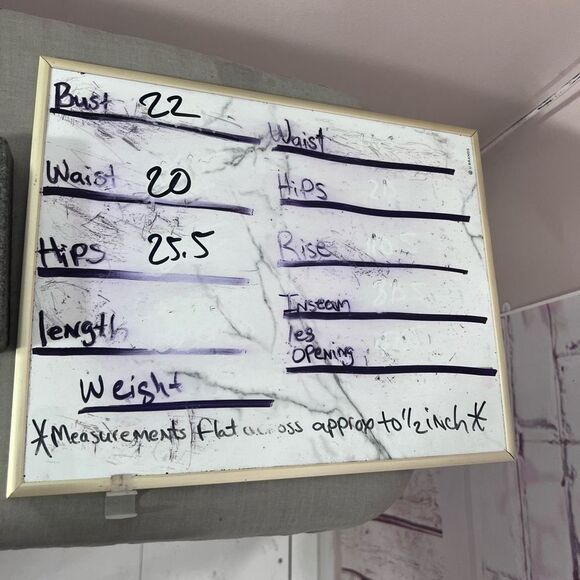 Bust 22
Waist 20
Hips 25.5
length
Weight
Waist
Hips
Rise
Inseam
leg
opening
*Measurements flat across approx to 1/2 inch*